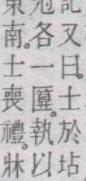 記又曰。士於坫
冠各一匴。執以
東南。士喪禮。牀